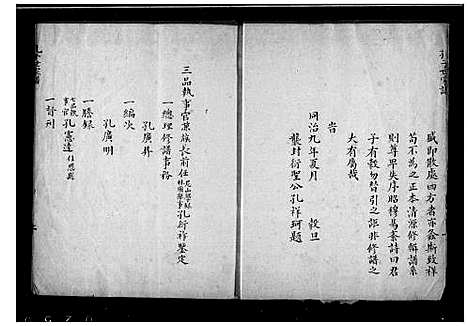 賦即散處四方者亦螽斯致祥
苟不為之正本清源修輯譜系
則尊卑失序昭穆易紊詩曰君
子有穀勿替引之詎非修譜之
大有厲哉
皆
同治九年夏月 穀旦
襲封衍聖公孔祥珂題
三品執事官兼族長前任
孔衍祚鑒定
一總理修譜事務
孔廣昇
一編次
孔廣明
一謄錄
孔憲達
一督刊